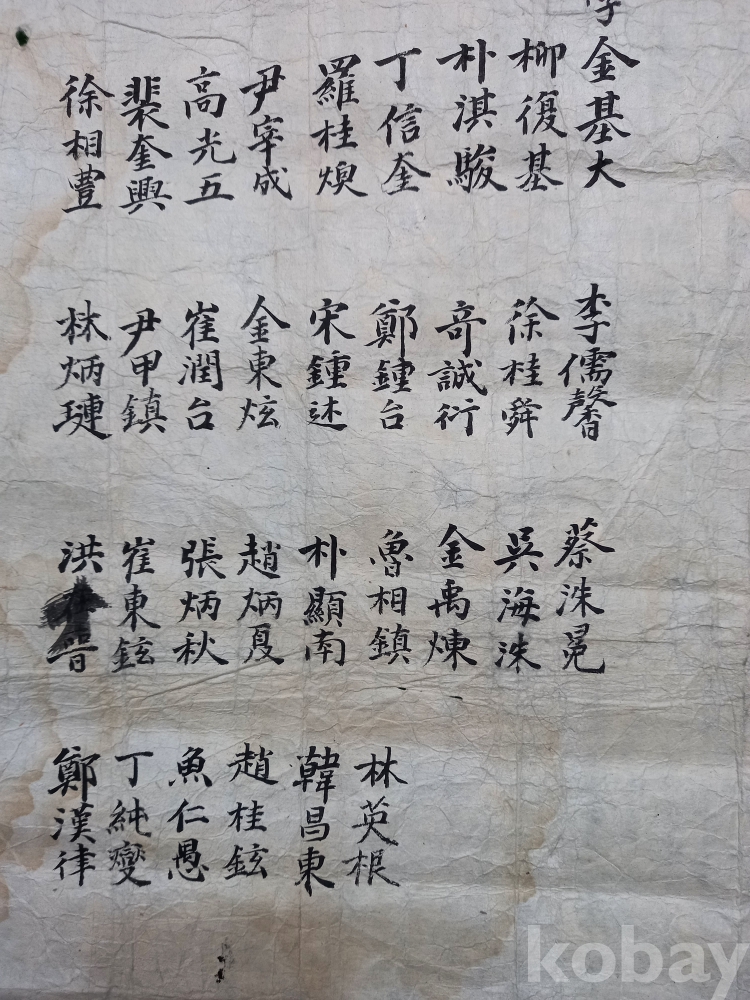 金基大
柳復基
朴淇駿
丁信奎
羅桂煥
尹宰成
高光五
裴奎興
徐相豊
李儒馨
徐桂舜
奇誠衍
鄭鍾台
宋鍾述
金東炫
崔潤台
尹甲鎮
林炳璉
蔡洙冕
吳海洙
金禹煉
魯相鎮
朴顯南
趙炳夏
張炳秋
崔東鉉
洪
林英根
韓昌東
趙桂鉉
魚仁愚
丁純燮
鄭漢律
kobay